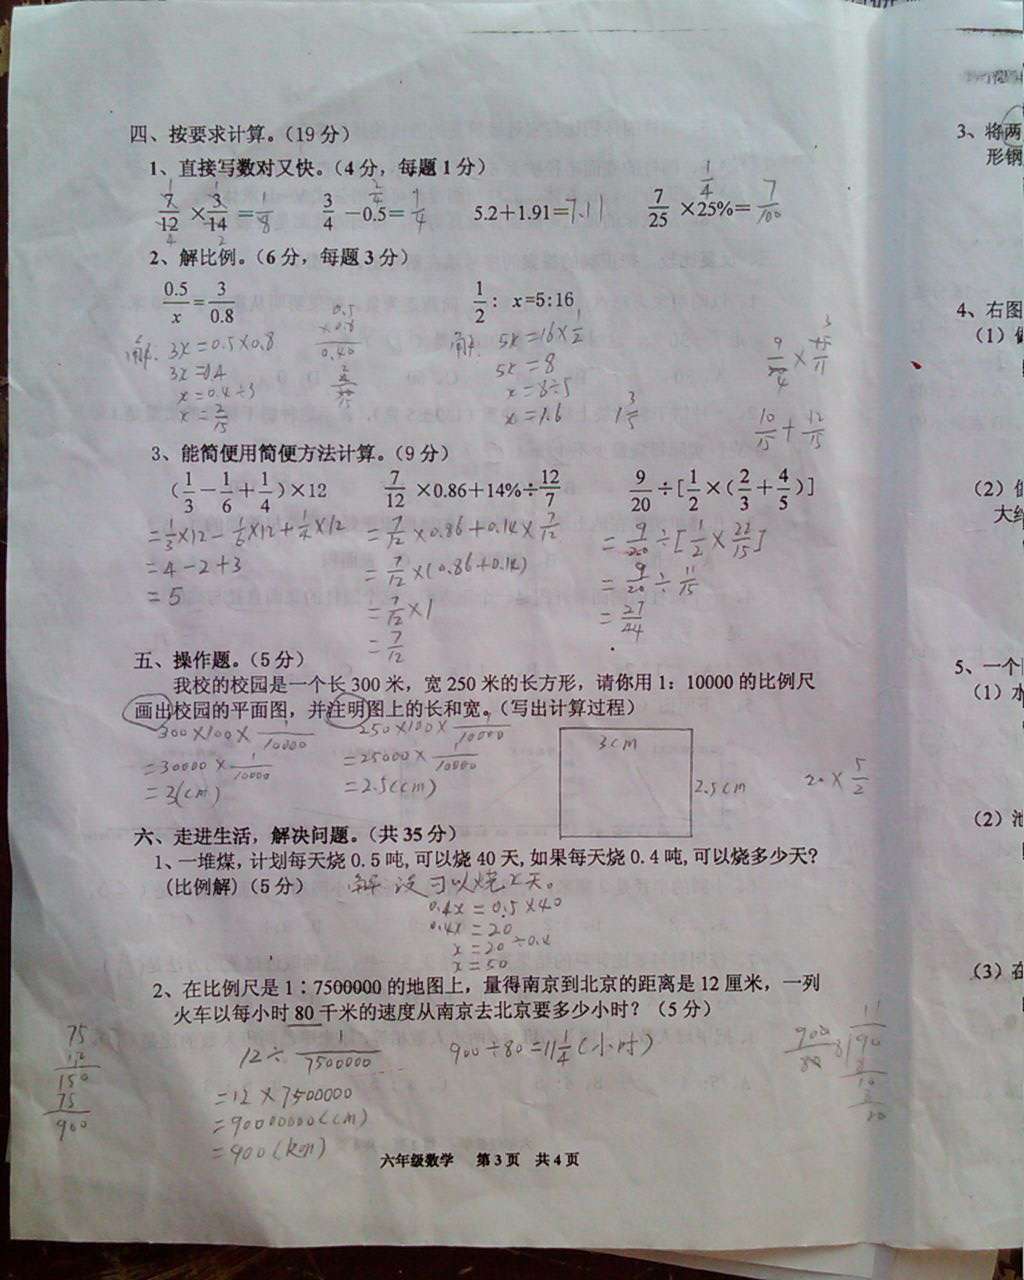 四、按要求计算。(19分)
1、直接写数对又快。(4分，每题1分)
7/12 × 3/14 = 1/8  3/4 －0.5= 1/4  5.2+1.91=7.11  7/25 ×25%= 7/100
2、解比例。(6分，每题3分)
0.5/x = 3/0.8  1/2 : x=5:16
解: 3x=0.5×0.8  解: 5x=16×1/2
3x=0.4  5x=8
x=0.4÷3  x=8÷5
x=2/15  x=1.6  1 3/5
0.5
×0.8
0.40
9/20 × 15/11
10/15 + 12/15
3、能简便用简便方法计算。(9分)
(1/3 － 1/6 + 1/4)×12  7/12 ×0.86+14%÷ 12/7  9/20 ÷[1/2 ×(2/3 + 4/5)]
=1/3×12－1/6×12+1/4×12  =7/12×0.86+0.14×7/12  =9/20÷[1/2×22/15]
=4－2+3  =7/12×(0.86+0.14)  =9/20÷11/15
=5  =7/12×1  =27/44
=7/12
五、操作题。(5分)
我校的校园是一个长300米，宽250米的长方形，请你用1：10000的比例尺
画出校园的平面图，并注明图上的长和宽。(写出计算过程)
300×100×1/10000  250×100×1/10000  3cm
=30000×1/10000  =25000×1/10000  2.5cm  20×5/2
=3(cm)  =2.5(cm)
六、走进生活，解决问题。(共35分)
1、一堆煤，计划每天烧0.5吨,可以烧40天,如果每天烧0.4吨,可以烧多少天?
(比例解)(5分)  解 设可以烧x天。
0.4x=0.5×40
0.4x=20
x=20÷0.4
x=50
2、在比例尺是1∶7500000的地图上，量得南京到北京的距离是12厘米，一列
火车以每小时80千米的速度从南京去北京要多少小时？(5分)
12÷1/7500000  900÷80=11 1/4(小时)
=12×7500000
=90000000(cm)
=900(km)
75
12
150
75
900
六年级数学  第3页  共4页
3、将两
形钢
4、右图
(1)
(2)
大约
5、一个
(1)水
(2)池
(3)在